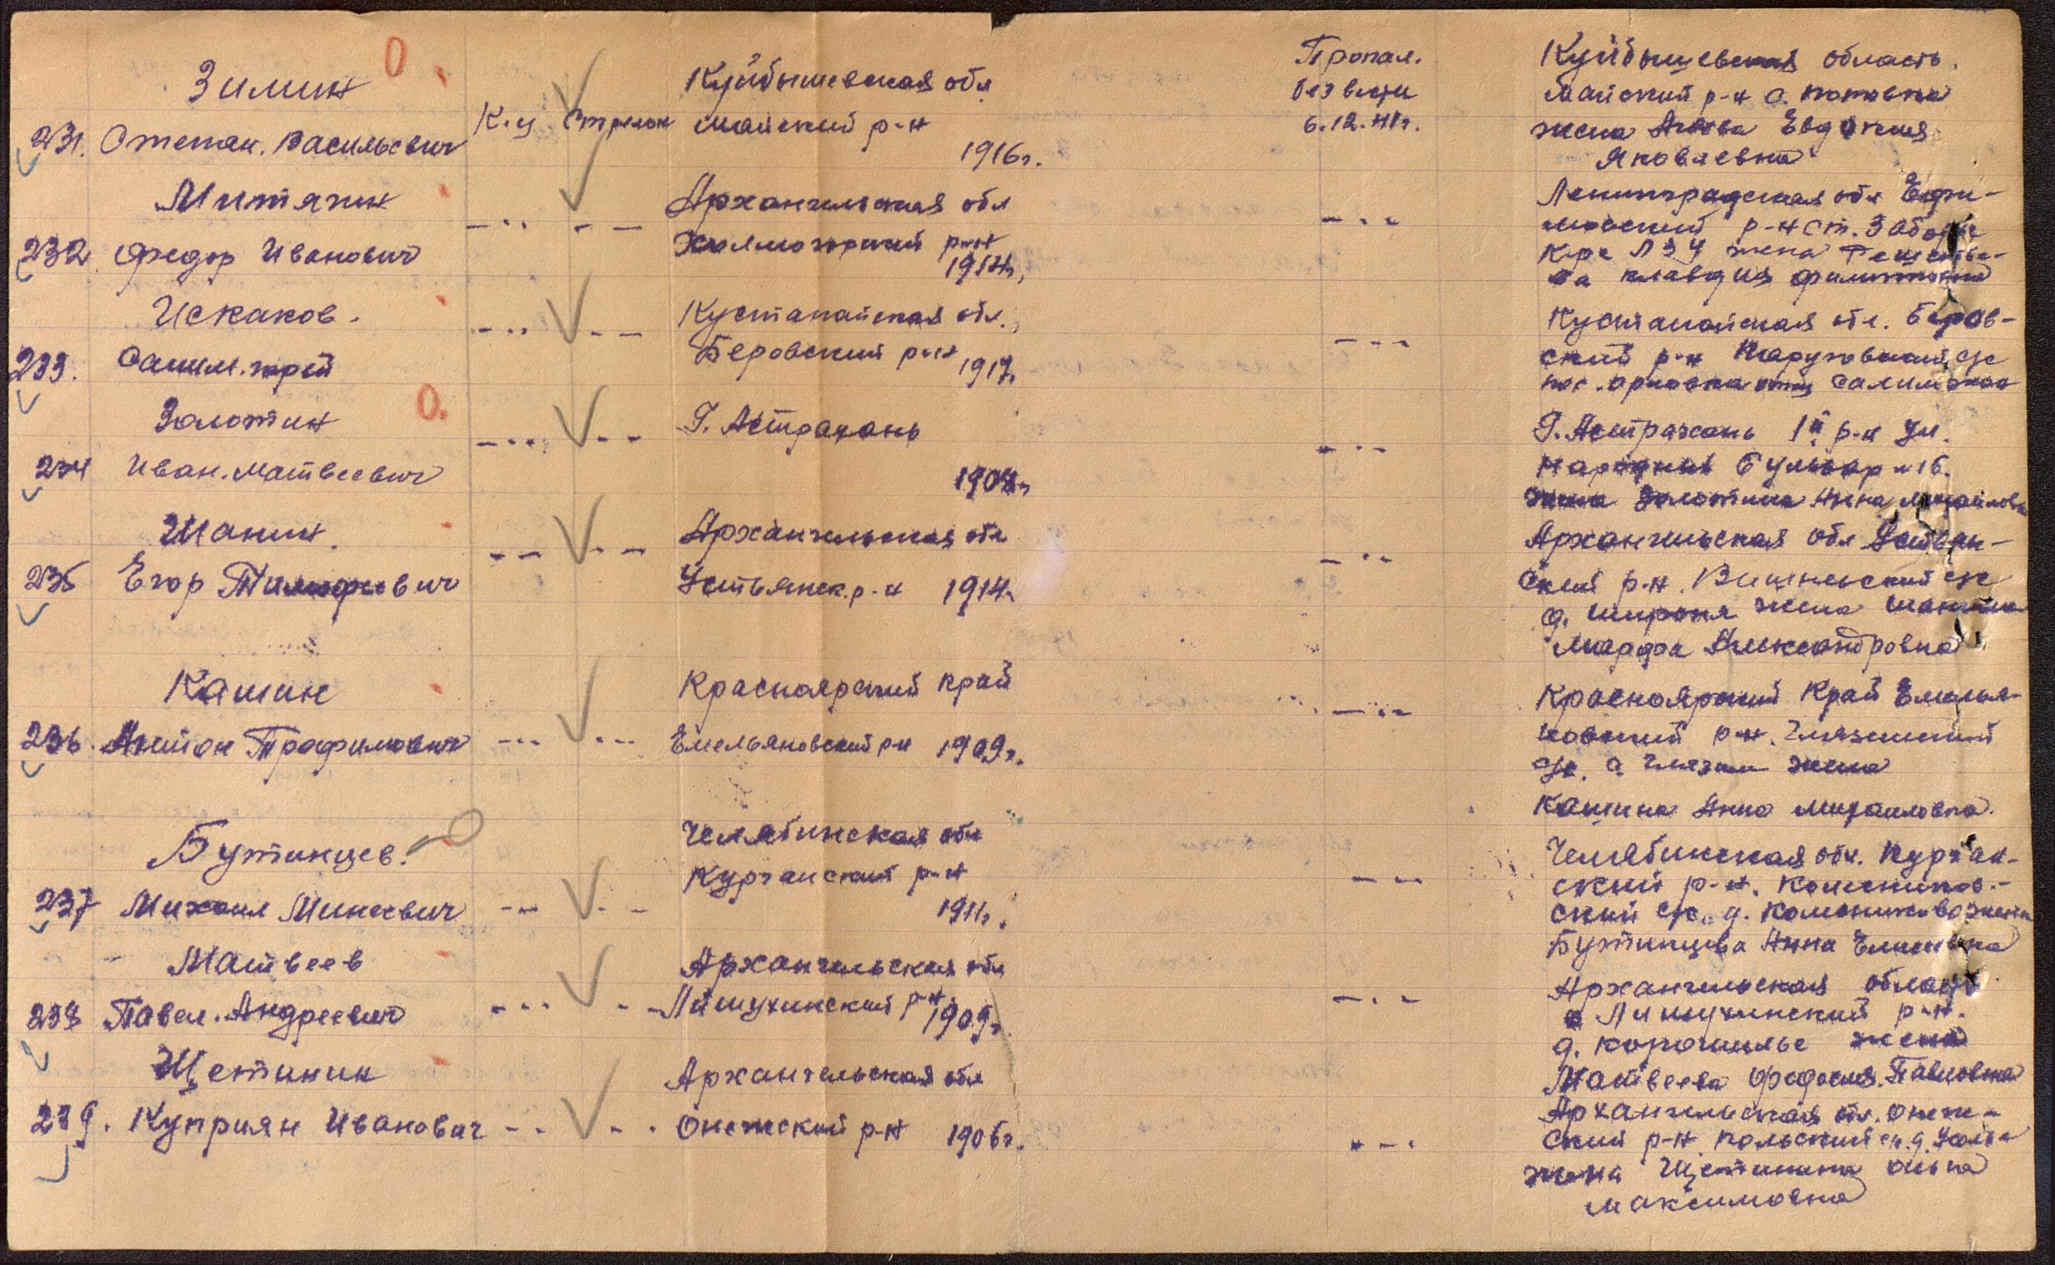 Зимин
231. Степан. Васильевич
К-ц Стрелок
Куйбышевская обл
Майский р-н
1916г.
Пропал.
без вести
6.12.41г.
Куйбышевская область.
Майский р-н с. Потовка
жена Евдокия
Яковлевна
Митягин
232 Федор Иванович
Архангельская обл
Холмогорский р-н
1914г,
Ленинградская обл Ефи-
мовский р-н ст. Заборье
жена
Клавдия
Искаков.
233. Салим.гирей
Кустанайская обл.
Беровский р-н
1917г
Кустанайская обл. Беров-
ский р-н с/с
пос. отец
Золотин
234 Иван. Матвеевич
Г. Астрахань
Г. Астрахань 1й р-н ул.
Народный Бульвар №16.
жена Золотина Анна Михайловн
Шанин.
235 Егор Тимофеевич
Архангельская обл
Устьянск. р-н 1914г
Архангельская обл Устьян-
ский р-н. с/с
д. жена Шанина
Марфа Александровна
Кашин
236. Антон Трофимович
Красноярский край
Емельяновский р-н 1909г.
Красноярский Край Емелья-
новский р-н.
с/с. с жена
Кашина Анна Михайловна.
Бутинцев.
237 Михаил Минеевич
Челябинская обл
Курганский р-н
1911г.
Челябинская обл. Курган-
ский р-н.
ский с/с. д.
Бутинцева Анна
Матвеев
238 Павел. Андреевич
Архангельская обл
Лишухинский р-н
1909г.
Архангельская область
Лишухинский р-н.
д. жена
Матвеева Федосия. Павловна
Щетинин
239. Куприян Иванович
Архангельская обл
Онежский р-н 1906г.
Архангельская обл. Онеж-
ский р-н Польский
жена Щетинина
Максимовна